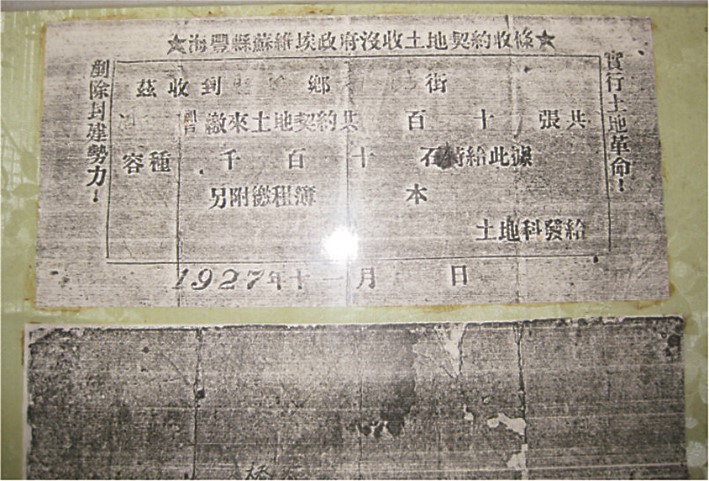 ★海豐縣蘇維埃政府沒收土地契約收條★
實行土地革命！
剷除封建勢力！
茲收到 鄉 街
繳來土地契約共 百 十 張共
容種 千 百 十 石特給此據
另附繳租簿 本
土地科發給
1927年十一月 日